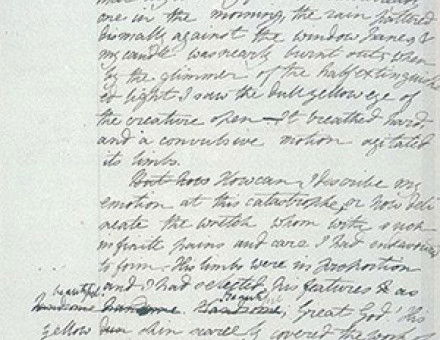 one in the morning, the rain pattered
dismally against the window panes &
my candle was nearly burnt out, when
by the glimmer of the half extinguish
ed light I saw the dull yellow eye of
the creature open — It breathed hard
and a convulsive motion agitated
its limbs.
But how How can I describe my
emotion at this catastrophe, or how deli
neate the wretch whom with such
infinite pains and care I had endeavoured
to form. His limbs were in proportion
and I had selected his features & as
beautiful
handsome handsome. Handsome, Great God! His
yellow dun skin scarcely covered the work of